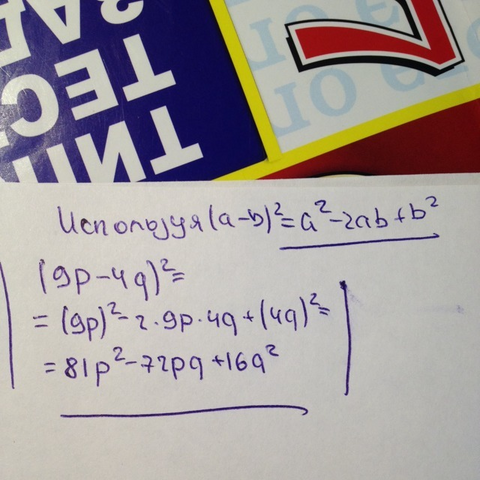 ЗАД
ТЕС
ТИП
7
Используя (a-b)²=a²-2ab+b²
(9p-4q)²=
=(9p)²-2·9p·4q+(4q)²=
=81p²-72pq+16q²